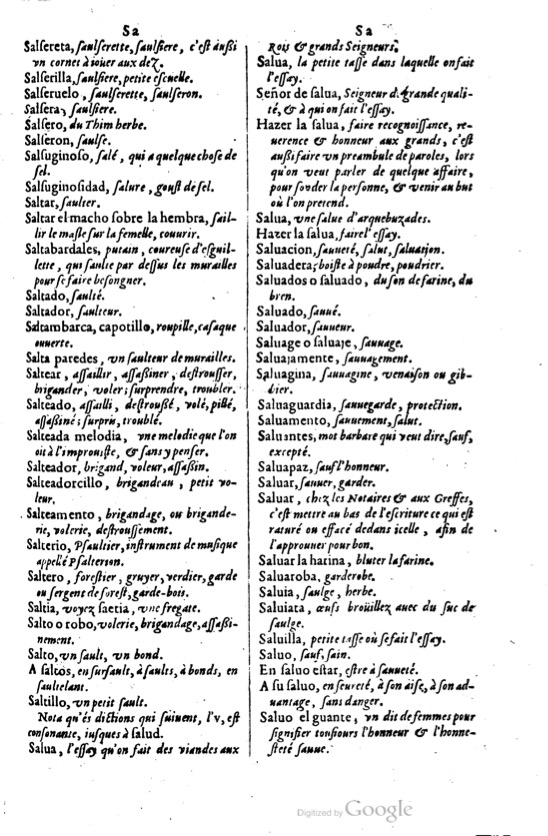 Sa
Salſereta, ſaulſerette, ſaulſiere, c'eſt außi
vn cornet à iouer aux dez.
Salſerilla, ſaulſiere, petite eſcuelle.
Salſeruelo, ſaulſerette, ſaulſeron.
Salſera, ſaulſiere.
Salſero, du Thim herbe.
Salſeron, ſaulſe.
Salſuginoſo, ſalé, qui a quelque choſe de
ſel.
Salſuginoſidad, ſalure, gouſt de ſel.
Saltar, ſaulter.
Saltar el macho ſobre la hembra, ſail-
lir le maſle ſur la femelle, couurir.
Saltabardales, putain, coureuſe d'eſguil-
lette, qui ſaulte par deſſus les murailles
pour ſe faire beſongner.
Saltado, ſaulté.
Saltador, ſaulteur.
Saltambarca, capotillo, roupille, caſaque
ouuerte.
Salta paredes, vn ſaulteur de murailles.
Saltear, aſſaillir, aſſaßiner, deſtrouſſer,
brigander, voler; ſurprendre, troubler.
Salteado, aſſailli, deſtrouſſé, volé, pillé,
aſſaßiné; ſurpris, troublé.
Salteada melodia, vne melodie que l'on
oit à l'improuiſte, & ſans y penſer.
Salteador, brigand, voleur, aſſaßin.
Salteadorcillo, brigandeau, petit vo-
leur.
Salteamento, brigandage, ou brigande-
rie, volerie, deſtrouſſement.
Salterio, Pſaultier, inſtrument de muſique
appellé Pſalterion.
Saltero, foreſtier, gruyer, verdier, garde
ou ſergent de foreſt, garde-bois.
Saltia, voyez ſaetia, vne fregate.
Salto o robo, volerie, brigandage, aſſaßi-
nement.
Salto, vn ſault, vn bond.
A ſaltos, en ſurſault, à ſaults, à bonds, en
ſaultelant.
Saltillo, vn petit ſault.
Nota qu'és dictions qui ſuiuent, l'v, eſt
conſonante, iuſques à ſalud.
Salua, l'eſſay qu'on fait des viandes aux
Sa
Rois & grands Seigneurs.
Salua, la petite taſſe dans laquelle on fait
l'eſſay.
Señor de ſalua, Seigneur de grande quali-
té, & à qui on fait l'eſſay.
Hazer la ſalua, faire recognoiſſance, re-
uerence & honneur aux grands, c'eſt
außi faire vn preambule de paroles, lors
qu'on veut parler de quelque affaire,
pour ſonder la perſonne, & venir au but
où l'on pretend.
Salua, vne ſalue d'arquebuzades.
Hazer la ſalua, faire l'eſſay.
Saluacion, ſauueté, ſalut, ſaluation.
Saluadera, boiſte à poudre, poudrier.
Saluados o ſaluado, du ſon de farine, du
bren.
Saluado, ſauué.
Saluador, ſauueur.
Saluage o ſaluaje, ſauuage.
Saluajamente, ſauuagement.
Saluagina, ſauuagine, venaiſon ou gib-
bier.
Saluaguardia, ſauuegarde, protection.
Saluamento, ſauuement, ſalut.
Saluantes, mot barbare qui veut dire, ſauf,
excepté.
Saluapaz, ſauf l'honneur.
Saluar, ſauuer, garder.
Saluar, chez les Notaires & aux Greffes,
c'eſt mettre au bas de l'eſcriture ce qui eſt
raturé ou effacé dedans icelle, afin de
l'approuuer pour bon.
Saluar la harina, bluter la farine.
Saluaroba, garderobe.
Saluia, ſaulge, herbe.
Saluiata, œufs broüillez auec du ſuc de
ſaulge.
Saluilla, petite taſſe où ſe fait l'eſſay.
Saluo, ſauf, ſain.
En ſaluo eſtar, eſtre à ſauueté.
A ſu ſaluo, en ſeureté, à ſon aiſe, à ſon ad-
uantage, ſans danger.
Saluo el guante, vn dit de femmes pour
ſignifier touſiours l'honneur & l'honne-
ſteté ſauue.
Digitized by Google